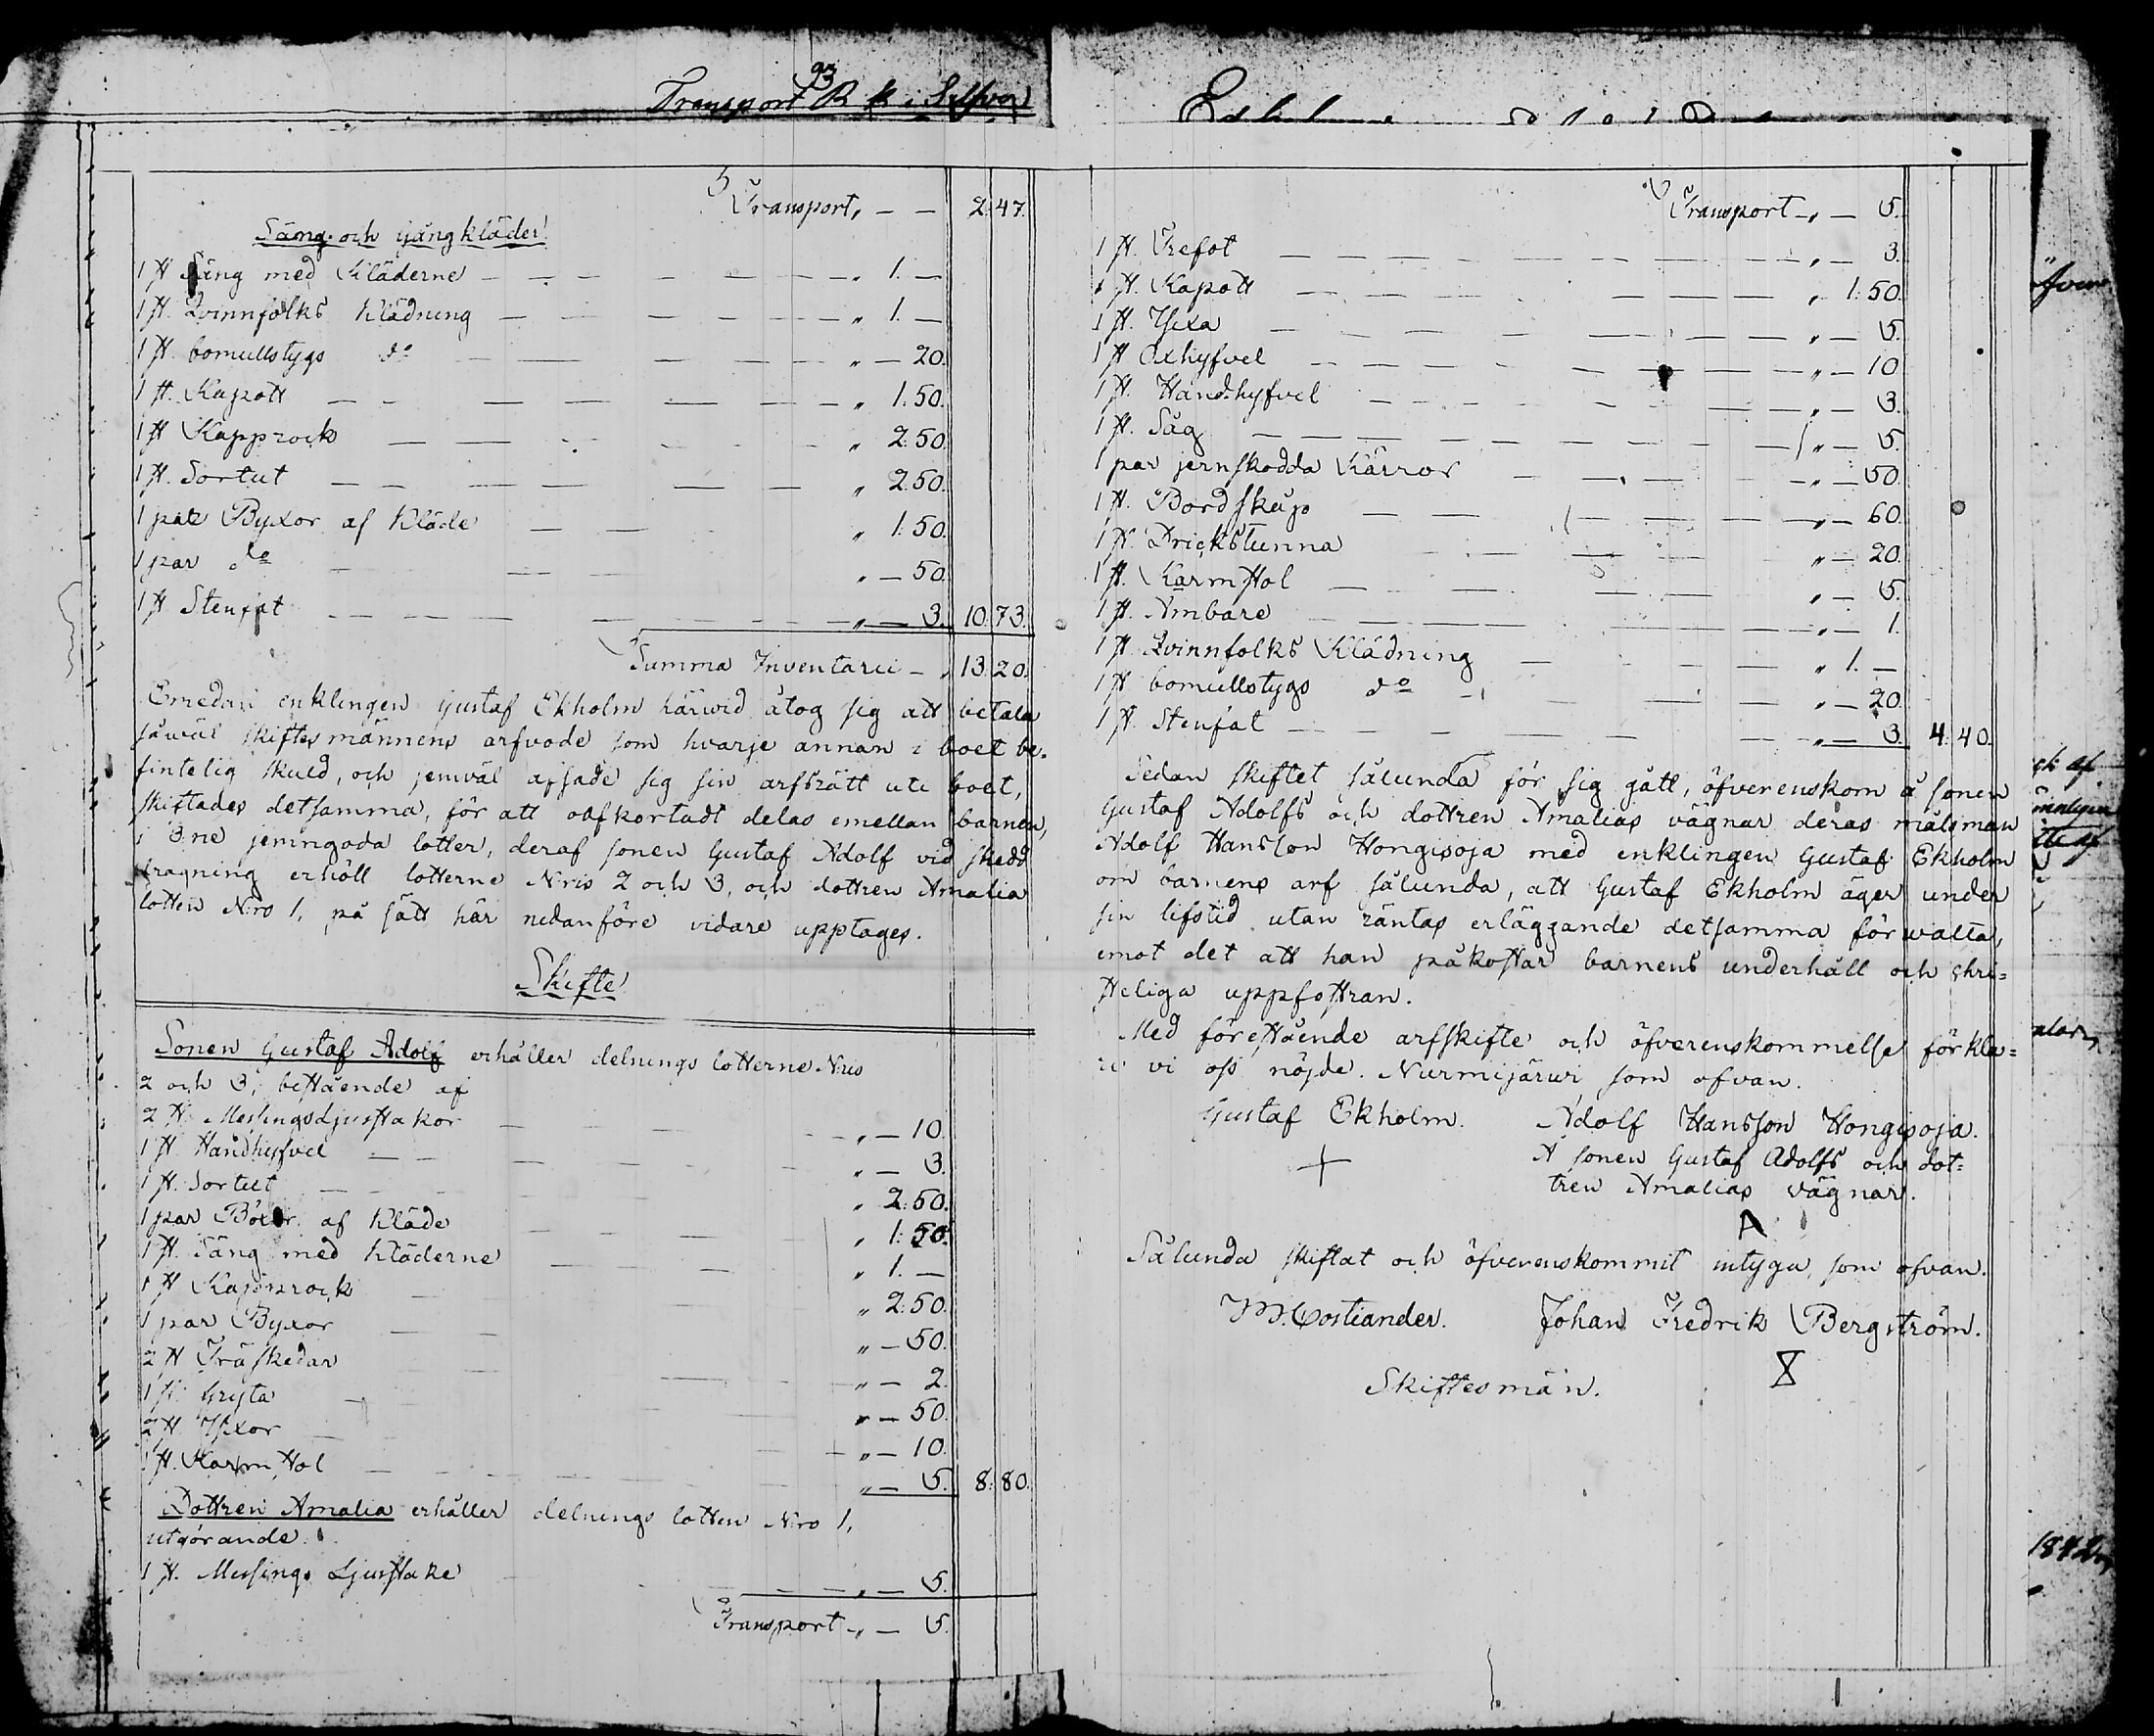 Transport R st i Silfver
Transport, — — 2. 47.
Säng- och gångkläder!
1 st Säng med Kläderne — — „ 1. —
1 st. Qvinnfolks Klädning — — „ 1. —
1 st. bomullstygs do — — „ — 20.
1 st. Kapott — — „ 1. 50.
1 st Kapprock — — „ 2. 50.
1 st. Sortut — — „ 2. 50.
1 par Byxor af Kläde — — „ 1. 50.
1 par do — — „ — 50.
1 st Stenfat — — „ — 3. 10. 73.
Summa Inventarii — „ 13. 20.
Emedan enklingen Gustaf Ekholm härwid åtog sig att betala
såwäl skiftesmännens arfvode som hvarje annan i boet be-
fintelig skuld, och jemväl afsade sig sin arfsrätt uti boet,
skiftades detsamma, för att oafkortadt delas emellan barnen,
i 3ne jemngoda lotter, deraf sonen Gustaf Adolf vid skedd
dragning erhöll lotterne N:ris 2 och 3, och dottren Amalia
lotten N:ro 1, på sätt här nedanföre vidare upptages.
Skifte
Sonen Gustaf Adolf erhåller delnings lotterne N:ris
2 och 3, bestående af
2 st. Messings Ljusstakor — — „ — 10.
1 st Handhyfvel — — „ — 3.
1 st. Sortut — — „ 2. 50.
1 par Böxor af Kläde — — „ 1. 50.
1 st. Säng med Kläderne — — „ 1. —
1 st Kapprock — — „ 2. 50.
1 par Byxor — — „ — 50.
2 st Träskedar — — „ — 2.
1 st. Gryta — — „ — 50.
2 st. Yxor — — „ — 10.
1 st. Karmstol — — „ — 5. 8. 80.
Dottren Amalia erhåller delnings lotten N:ro 1,
utgörande.
1 st. Messings Ljusstake — — „ — 5.
Transport „ — 5.
Transport „ — 5.
1 st. Trefot — — „ — 3.
1 st. Kapott — — „ 1. 50.
1 st. Yxa — — „ — 5.
1 st Oxhyfvel — — „ — 10
1 st. Handhyfvel — — „ — 3.
1 st. Såg — — „ — 5.
1 par jernskodda Kärror — — „ — 50.
1 st. Bordskåp — — „ — 60.
1 st. Drickstunna — — „ — 20.
1 st. Karmstol — — „ — 5.
1 st. Ämbare — — „ — 1.
1 st. Qvinnfolks Klädning — — „ 1. —
1 st bomullstygs do — — „ — 20.
1 st. Stenfat — — „ — 3. 4. 40.
Sedan skiftet sålunda för sig gått, öfverenskom å sonen
Gustaf Adolfs och dottren Amalias vägnar deras målsman
Adolf Hansson Hongisoja med enklingen Gustaf Ekholm
om barnens arf sålunda, att Gustaf Ekholm äger under
sin lifstid utan räntas erläggande detsamma förwalta,
emot det att han påkostar barnens underhåll och chri=
steliga uppfostran.
Med förestående arfskifte och öfverenskommelse förkla=
re vi oss nöjde. Nurmijärwi som ofvan.
Gustaf Ekholm. Adolf Hansson Hongisoja.
Å sonen Gustaf Adolfs och dot=
tren Amalias vägnar.
A
Sålunda skiftat och öfverenskommit intyga, som ofvan.
Costiander. Johan Fredrik Bergström.
Skiftesmän.